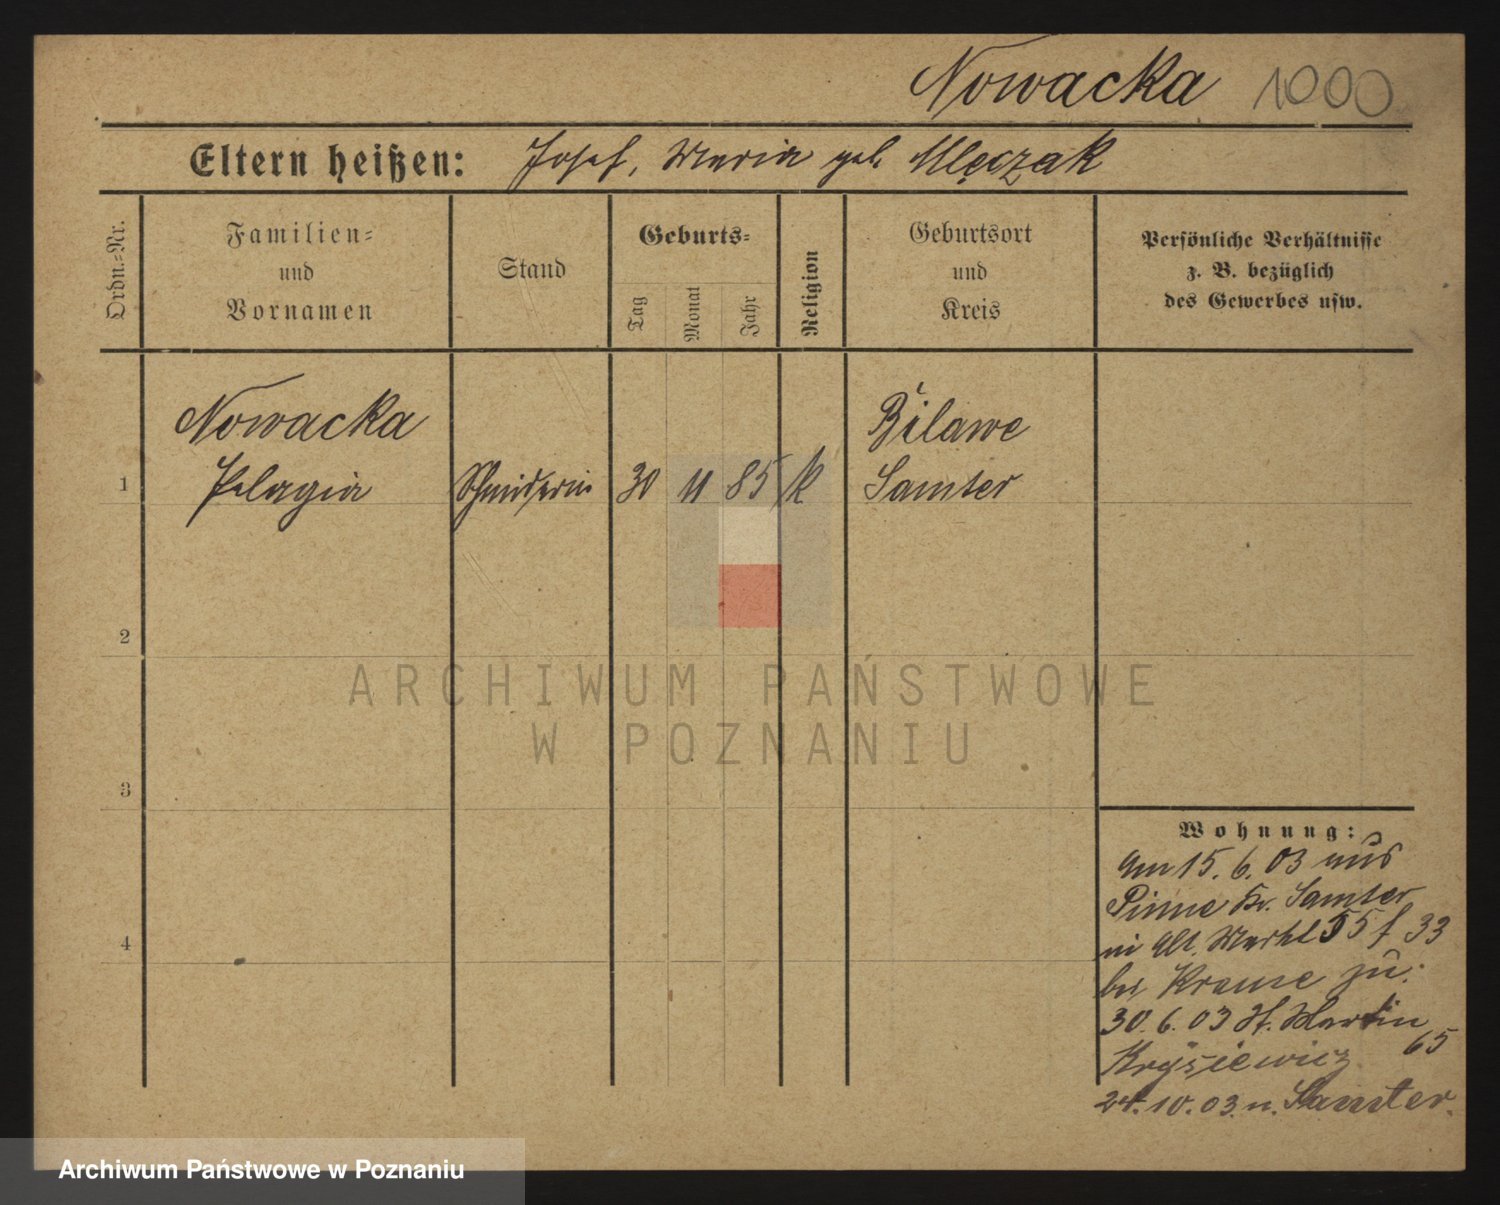 Nowacka 1000
Eltern heißen: Josef, Maria geb. Mleczak
Ordn.-Nr.
Familien-
und
Vornamen
Stand
Geburts-
Tag
Monat
Jahr
Religion
Geburtsort
und
Kreis
Persönliche Verhältnisse
z. B. bezüglich
des Gewerbes usw.
Nowacka Bilawe
1 Pelagia Schneiderin 30 11 85 k Samter
2
3
4
Wohnung:
Am 15. 6. 03 aus
Pinne Kr. Samter
Alt. Markt 55 f 33
bei Krause zu.
30. 6. 03 St. Martin
Krysiewicz 65
24. 10. 03. n. Samter.
ARCHIWUM PAŃSTWOWE
W POZNANIU
Archiwum Państwowe w Poznaniu